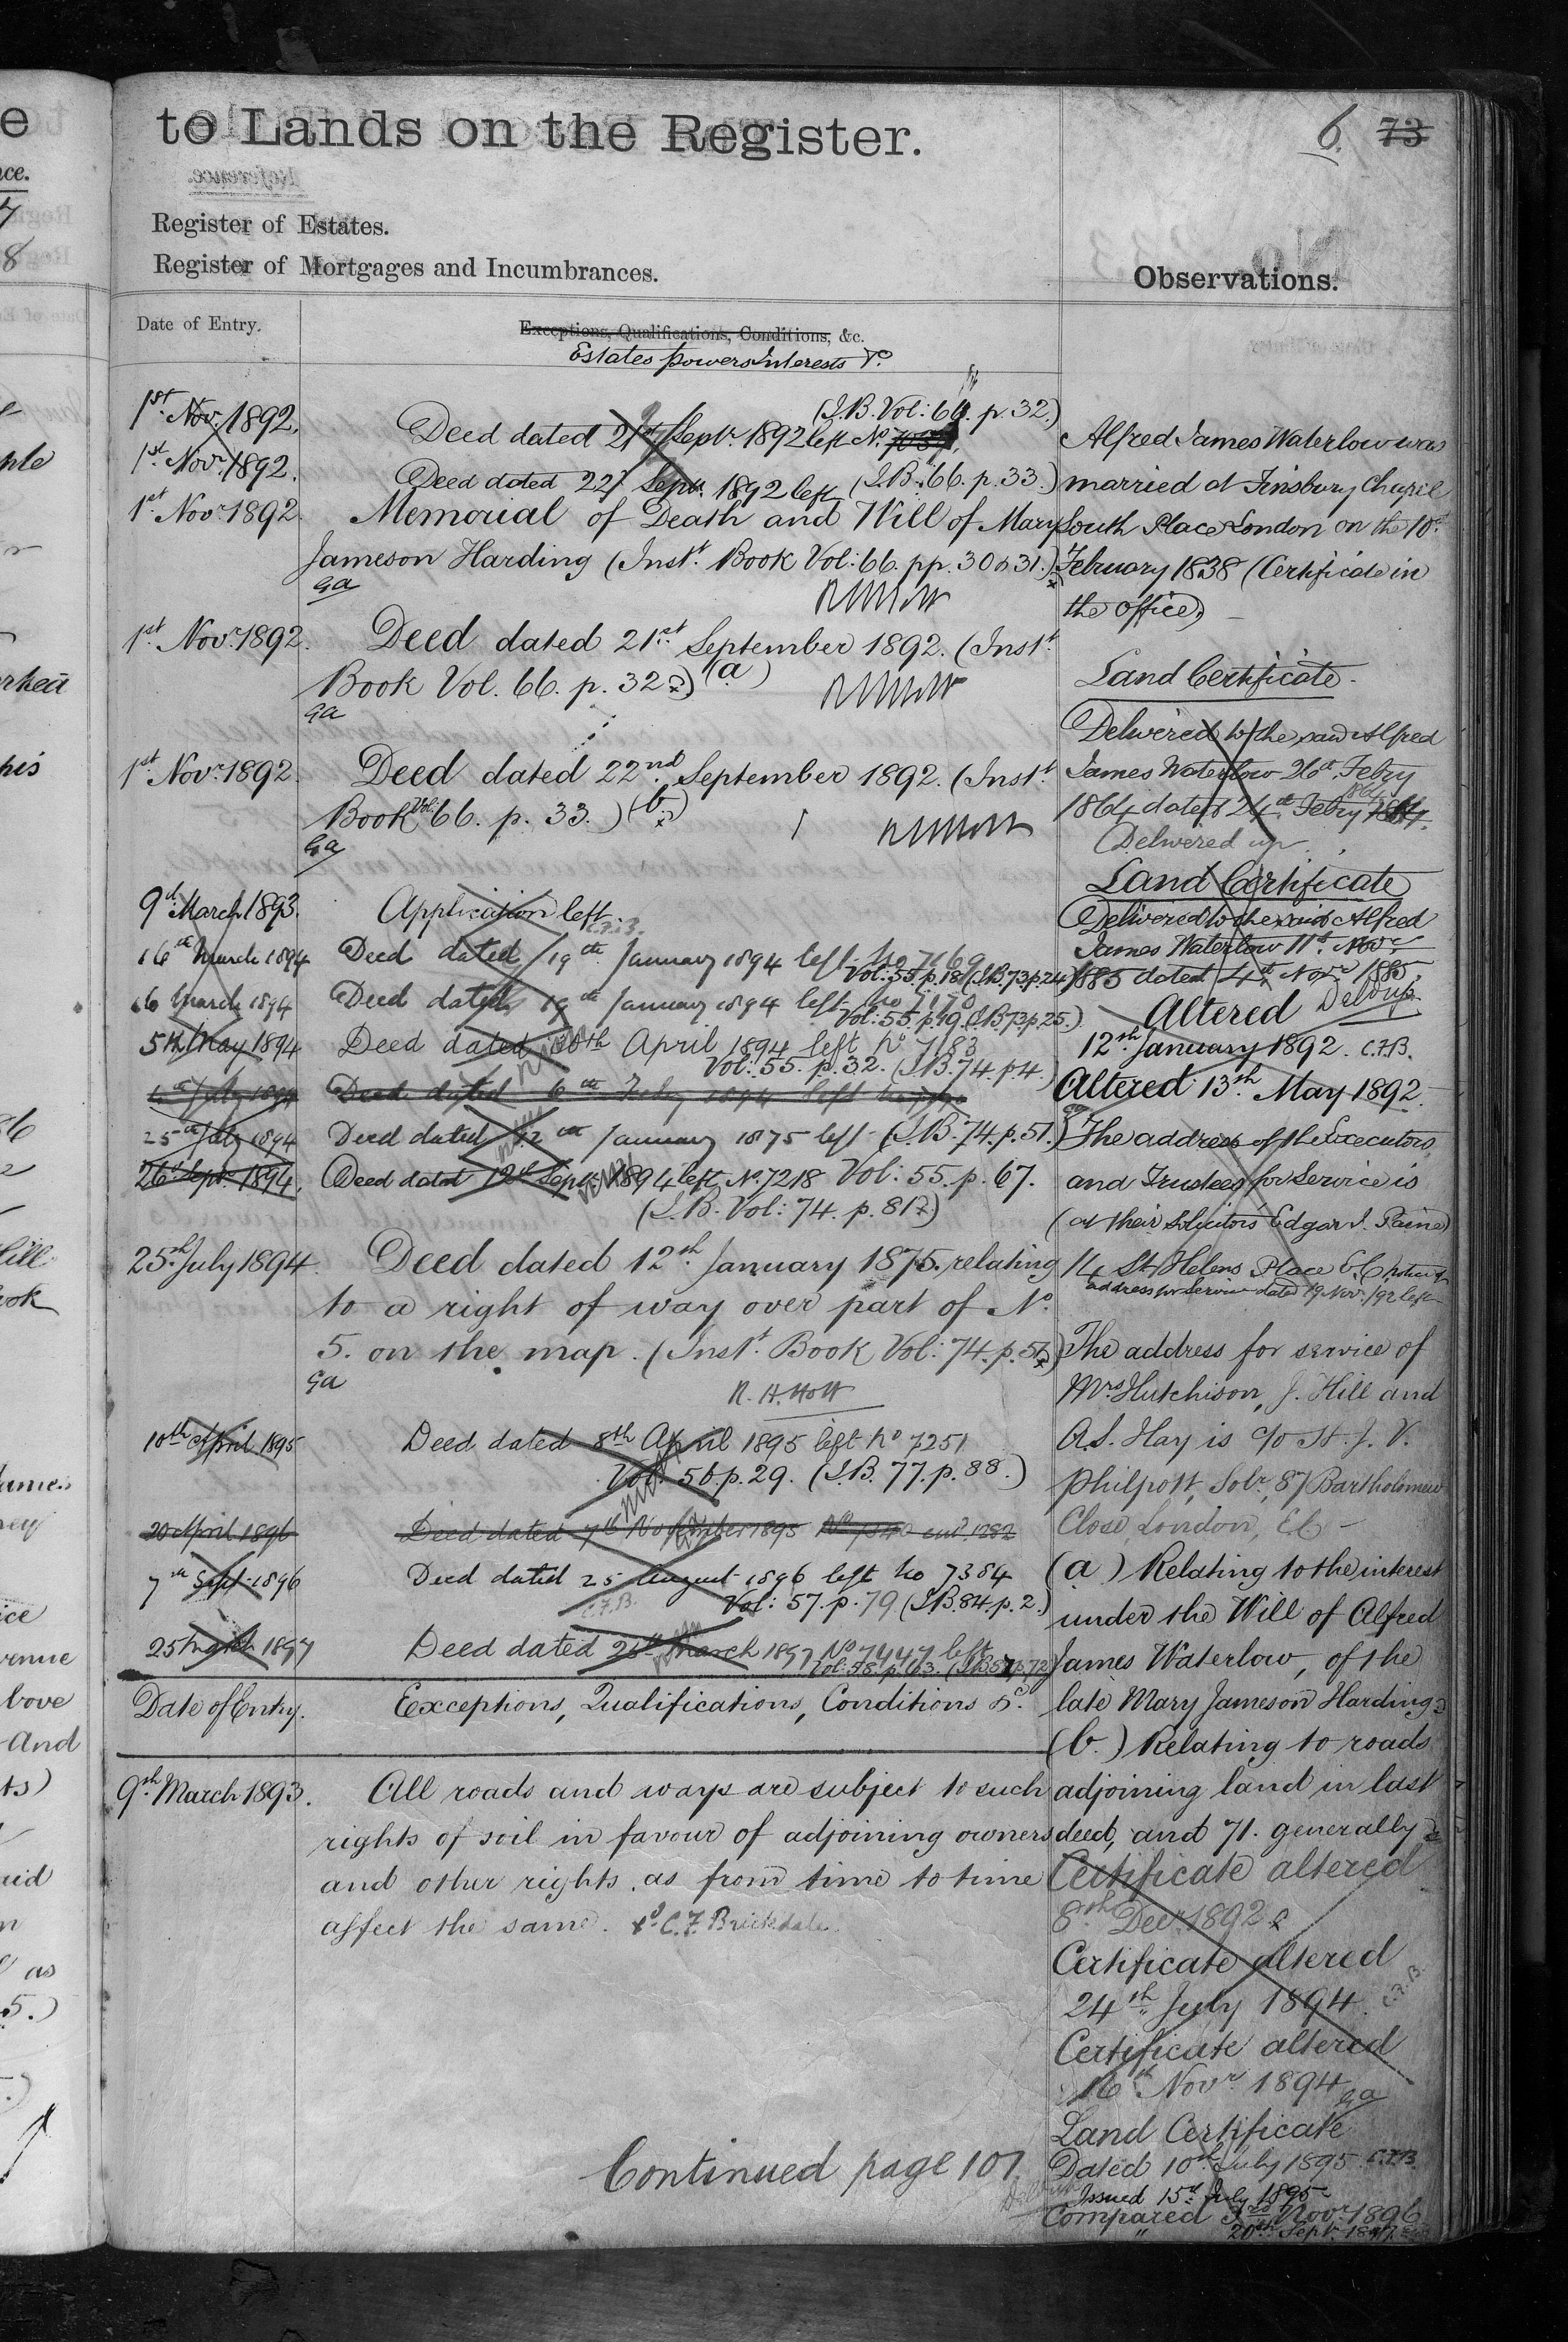 to Lands on the Register.
6. 73
Register of Estates.
Register of Mortgages and Incumbrances.
Observations.
Date of Entry.
Exceptions, Qualifications, Conditions, &c.
Estates powers Interests &c
1st Nov. 1892.
(I.B. Vol: 66. p. 32.)
Deed dated 21st Septr 1892 left No.
1st Novr 1892.
Deed dated 22 Septr 1892 left (I.B. 66. p. 33.)
1st Novr 1892
Memorial of Death and Will of Mary
Jameson Harding (Instt. Book Vol: 66. pp. 30 & 31.)
Ga
1st Novr 1892.
Deed dated 21st September 1892. (Instt.
Book Vol. 66. p. 32.) (a)
Ga
1st Novr 1892.
Deed dated 22nd September 1892. (Instt.
Book Vol: 66. p. 33.) (b)
Ga
9th March 1893.
Application left.
C.F.B.
16th March 1894
Deed dated 19th January 1894 left No 7169
Vol: 55. p. 18 (I.B. 73. p. 24)
16 March 1894
Deed dated 19th January 1894 left No 7170
Vol: 55. p. 19. (I.B. 73. p. 25.)
5th May 1894
Deed dated 30th April 1894 left No 7183
Vol: 55. p. 32. (I.B. 74. p. 4.)
6th July 1894
Deed dated 6th July 1894 left
25th July 1894
Deed dated 12th January 1875 left (I.B. 74. p. 51.)
26th Septr 1894.
Deed dated 12th Septr 1894 left No. 7218 Vol: 55. p. 67.
(I.B. Vol: 74. p. 81.)
25th July 1894.
Deed dated 12th January 1875. relating
to a right of way over part of No.
5. on the map. (Instt. Book Vol: 74. p. 51.)
Ga
R. H. Holt
10th April 1895
Deed dated 8th April 1895 left No 7251
Vol. 56. p. 29. (I.B. 77. p. 88.)
20 April 1896
Deed dated 7th November 1895
7th Sept 1896
Deed dated 25 August 1896 left No 7384
C.F.B.
Vol: 57. p. 79 (I.B. 84. p. 2.)
25 March 1897
Deed dated 25th March 1897 No 7447 left
Vol: 58. p. 63.
Date of Entry.
Exceptions, Qualifications, Conditions &c.
9th March 1893.
All roads and ways are subject to such
rights of soil in favour of adjoining owners
and other rights as from time to time
affect the same. C.F. Brickdale
Continued page 101.
Alfred James Waterlow was
married at Finsbury Chapel
South Place London on the 10th
February 1838 (Certificate in
the office)
Land Certificate.
Delivered to the said Alfred
James Waterlow 26th Febry
1864 dated 24th Febry 1864.
Delivered up
Land Certificate
Delivered to the said Alfred
James Waterlow 11th Novr
1885 dated 4th Novr 1885.
Altered Deld up.
12th January 1892. C.F.B.
Altered 13th May 1892.
The address of the Executors
and Trustees for Service is
(at their Solicitors Edgar J. Paine)
14 St Helens Place E.C. notice of
address for Service dated 19 Nov. /92 left
The address for service of
Mrs Hutchison, J. Hill and
A.S. Hay is c/o H. J. V.
Philpott, Solr, 87 Bartholomew
Close, London, E.C.
(a) Relating to the interest
under the Will of Alfred
James Waterlow, of the
late Mary Jameson Harding.
(b.) Relating to roads
adjoining land in last
deed, and 71. generally
Certificate altered
8th Decr 1892
Certificate altered
24th July 1894. C.F.B.
Certificate altered
16th Novr 1894
Ga
Land Certificate
Dated 10th July 1895 C.F.B.
Issued 15th July 1895
Compared 3rd Novr 1896
" 20th Septr 1897